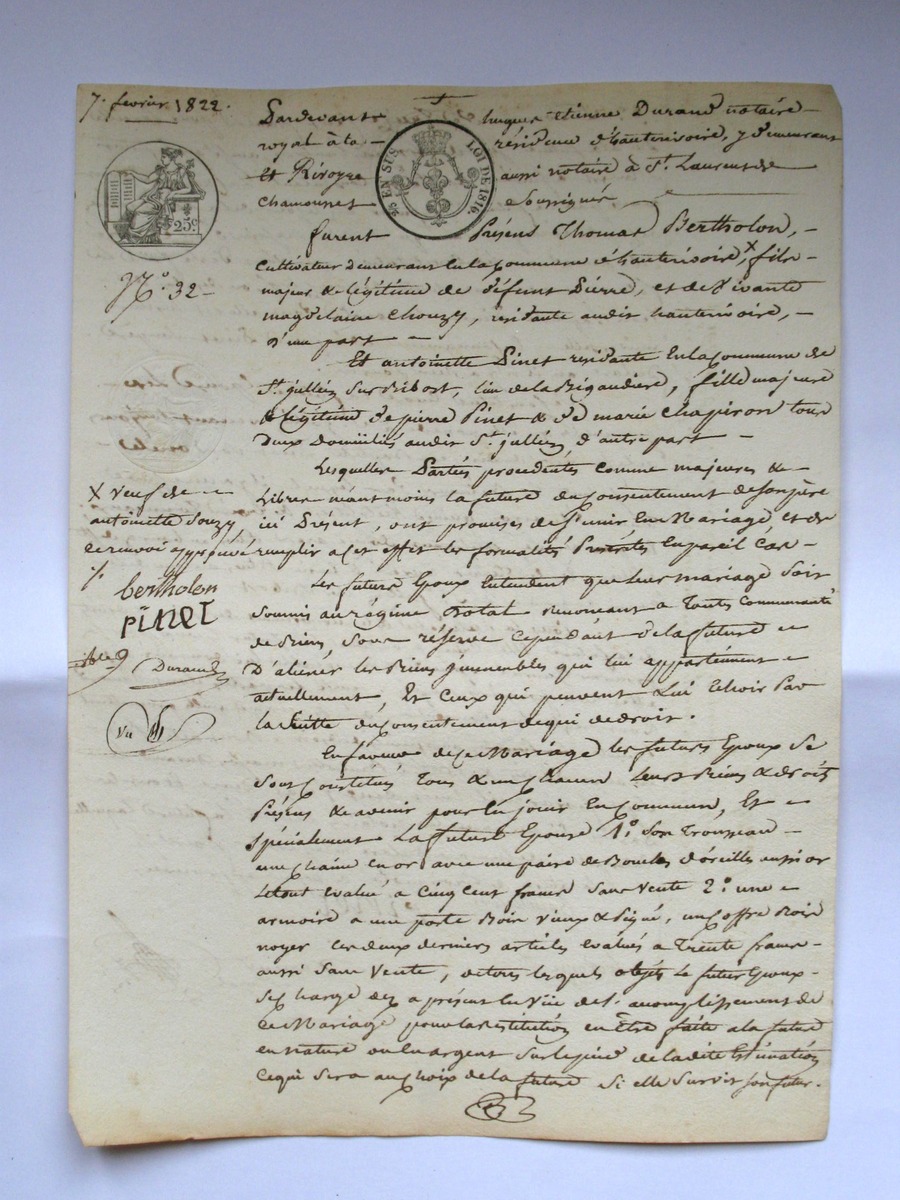 7. fevrier 1822.
Pardevant hugues etienne Durand notaire
royal à la résidence d'hauterivoire, y demeurant
Et Rivoyre aussi notaire à St. Laurent de
chamousset soussignés
25 EN SUS LOI DE 1816
25c
N.º 32
furent Présens Thomas Bertholon,
cultivateur demeurant en la Commune d'hauterivoire, x fils
majeur & légitime de défunt Pierre, et de vivante
magdelaine chouzy, résidante audit hauterivoire,
d'une part
Et antoinette Pinet residante en la Commune de
St. jullien sur Bibost, lieu de la Bigaudiere, fille majeure
& légitime de pierre Pinet & de marie Chapiron tous
deux domiciliés audit St. jullien, d'autre part
Lesquelles Parties procedentes comme majeures &
Libres néantmoins la future du consentement de son père
ici Présent, ont promises de s'unir En Mariage, et de
remplir a cet effet les formalités Prescrites En pareil Cas
X veuf de
antoinette Souzy,
ce renvoi approuvé
bertholon
Pinet
Durand
Vu
Les futurs Epoux Entendent que leur mariage soit
soumis au régime Dotal renonçant a toutes communauté
de Biens, sous réserve cependant de la future
D'aliéner les Biens immeubles qui lui appartiennent
actuellement, Et ceux qui peuvent Lui Echoir Par
la suitte du consentement de qui de droit.
En faveur de ce Mariage les futurs Epoux se
sont constitués Tous & un chacun Leurs Biens & droits
Présens & avenir pour En jouir En commun, Et
spécialement La future Epouse 1.º son Trousseau
une chaine en or avec une paire de Boucles d'oreilles aussi or
le tout Evalué a Cinq Cent francs sans vente 2.º une
armoire a une porte Bois vieux & piqué, un coffre Bois
noyer ces deux derniers articles évalués a Trente francs
aussi sans vente, de tous lesquels objets Le futur Epoux
se charge dez a présent En vüe de l'accomplissement de
ce Mariage pour la restitution en Etre faite a la future
en nature ou En argent sur le pied de la dite Estimation
ce qui sera au choix de la future si elle survit son futur.